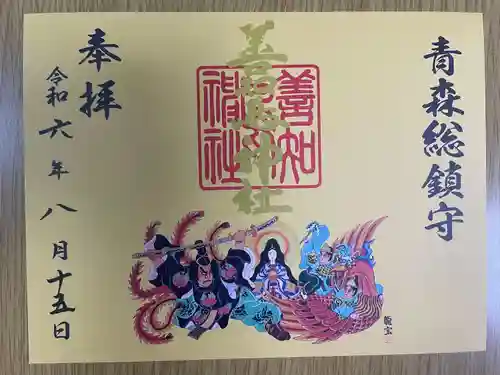 青森総鎮守
善知鳥神社
善知鳥神社
奉拝
令和六年八月十五日
龍宝